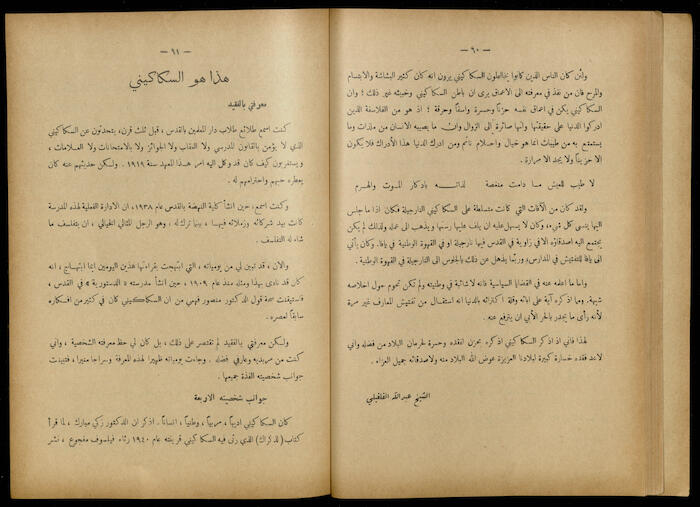 — ٦٠ —
ولئن كان الناس الذين كانوا يخالطون السكاكيني يرون انه كان كثير البشاشة والابتسام
والمرح فان من نفذ في معرفته الى الاعماق يرى ان باطن السكاكيني وخبيئه غير ذلك ؛ وان
السكاكيني يكن في اعماق نفسه حزناً وحسرة واسفاً وحرقة ؛ اذ هو من الفلاسفة الذين
ادركوا الدنيا على حقيقتها وانها صائرة الى الزوال وان ما يصيبه الانسان من ملذات وما
يستمتع به من طيبات انما هو خيال واحلام نائم ومن ادرك الدنيا هذا الادراك فلا يكون
الا حزيناً ولا يجد الا مرارة .
لا طيب للعيش ما دامت منغصة لذاته بادكار الموت والهرم
ولقد كان من الآفات التي كانت متسلطة على السكاكيني النارجيلة فكان اذا ما جلس
اليها ينسى كل شيء، وكان لا يسهل عليه ان يلف عليها رسنها ويذهب الى عمله ولذلك لم يكن
يجتمع اليه اصدقاؤه الا في زاوية في القدس فيها نارجيلة او في القهوة الوطنية في يافا. وكان يأتي
الى يافا للتفتيش في المدارس، وربما يذهل عن ذلك بالجلوس الى النارجيلة في القهوة الوطنية .
واما ما اعلمه عنه في القضايا السياسية فانه لاشائبة في وطنيته ولم تكن تحوم حول اخلاصه
شبهة. ومما اذكره آية على ابائه وقلة اكتراثه بالدنيا انه استقال من تفتيش المعارف غير مرة
لأنه رأى ما يجدر بالحر الأبي ان يترفع عنه .
لهذا فاني اذ اذكر السكاكيني اذكره بحزن لفقده وحسرة لحرمان البلاد من فضله واني
لاعد فقده خسارة كبيرة لبلادنا العزيزة عوض الله البلاد منه ولاصدقائه جميل العزاء .
الشيخ عبدالله القلقيلي
— ٦١ —
هذا هو السكاكيني
معرفتي بالفقيد
كنت اسمع طلائع طلاب دار المعلمين بالقدس، قبل ثلث قرن، يتحدثون عن السكاكيني
الذي لا يؤمن بالقانون المدرسي ولا العقاب ولا الجوائز ولا بالامتحانات ولا العلامات ،
ويستغربون كيف كان قد وكل اليه امر هذا المعهد سنة ١٩١٩ . ولكن حديثهم عنه كان
يعطره حبهم واحترامهم له .
وكنت اسمع ، حين انشأ كلية النهضة بالقدس عام ١٩٣٨، ان الادارة الفعلية لهذه المدرسة
كانت بيد شركائه وزملائه فيها ، بينما ترك له ؛ وهو الرجل المثالي الخيالي ، ان يتفلسف ما
شاء له التفلسف .
والآن ، قد تبين لي من يومياته ، التي ابتهجت بقراءتها هذين اليومين ايما ابتهاج ، انه
كان قد نادى بهذا ومثله منذ عام ١٩٠٩ ، حين انشأ مدرسته « الدستورية » في القدس ،
فاستيقنت صحة قول الدكتور منصور فهمي من ان السكاكيني كان في كثير من افكاره
سابقاً لعصره .
ولكن معرفتي بالفقيد لم تقتصر على ذلك ، بل كان لي حظ معرفته الشخصية ، واني
كنت من مريديه وعارفي فضله . وجاءت يومياته ظهيراً لهذه المعرفة وسراجا منيراً ، فتبينت
جوانب شخصيته الفذة جميعها .
جوانب شخصيته الاربعة
كان السكاكيني اديباً، مربياً، وطنياً ، انساناً . اذكر ان الدكتور زكي مبارك ، لما قرأ
كتاب (لذكراك) الذي رثى فيه السكاكيني قرينته عام ١٩٤٠ رثاء فيلسوف مفجوع ، نشر